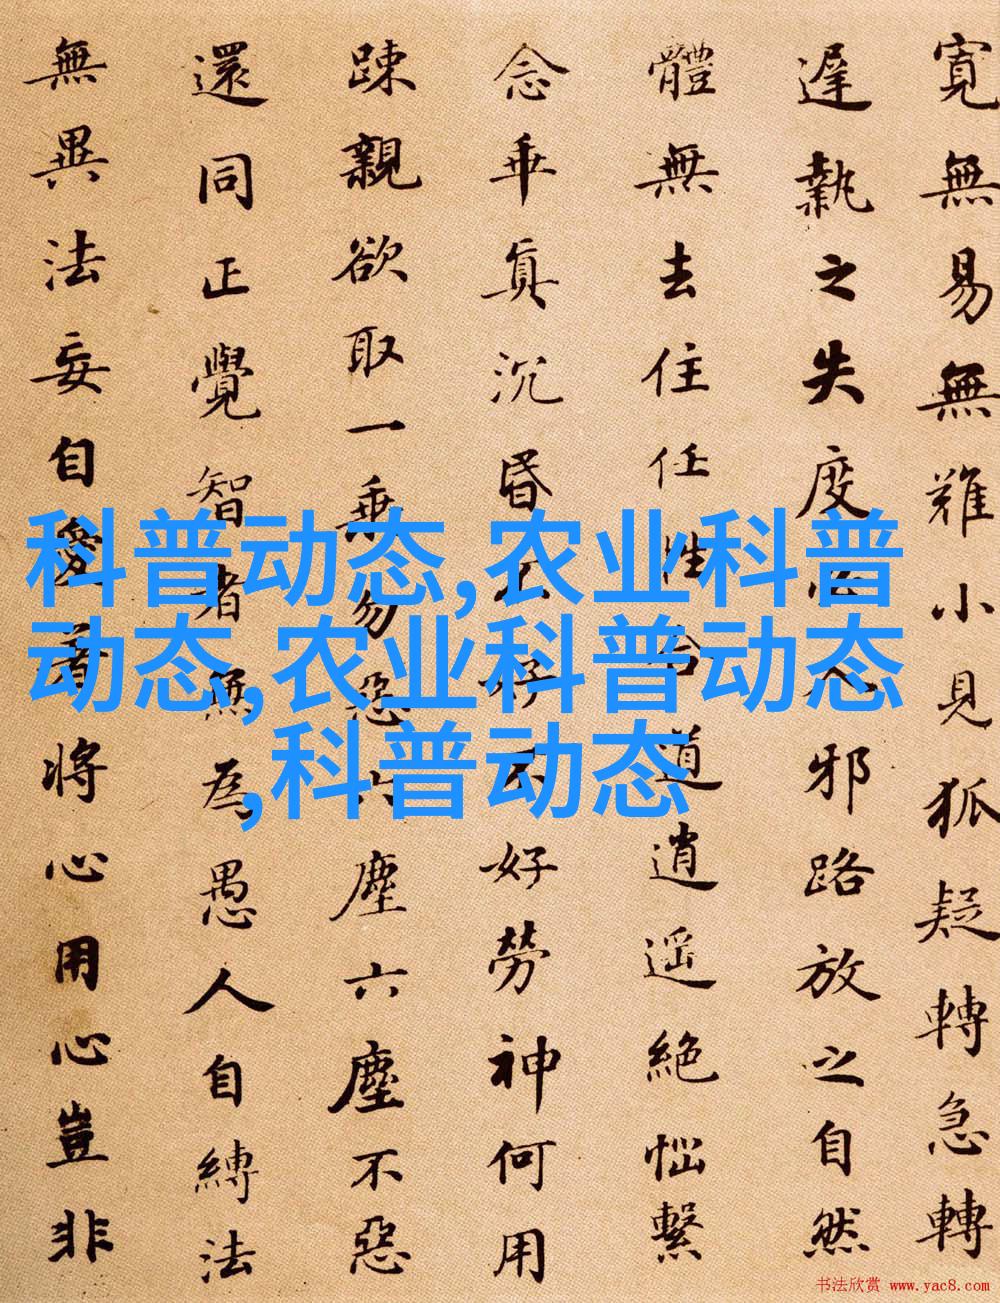 寬無易無難小見狐疑轉急轉
遲執之失度必入邪路放之自然
體無去住任性合道逍遥絕惱繫
念乖真沉昏不好不好勞神何用
踈親欲取一乘勿惡六塵六塵不惡
還同正覺智者無為愚人自縛法
無異法妄自愛著將心用心豈非
科普动态,农业科普
动态,农业科普动态
,科普动态
书法欣赏 www.yac8.com